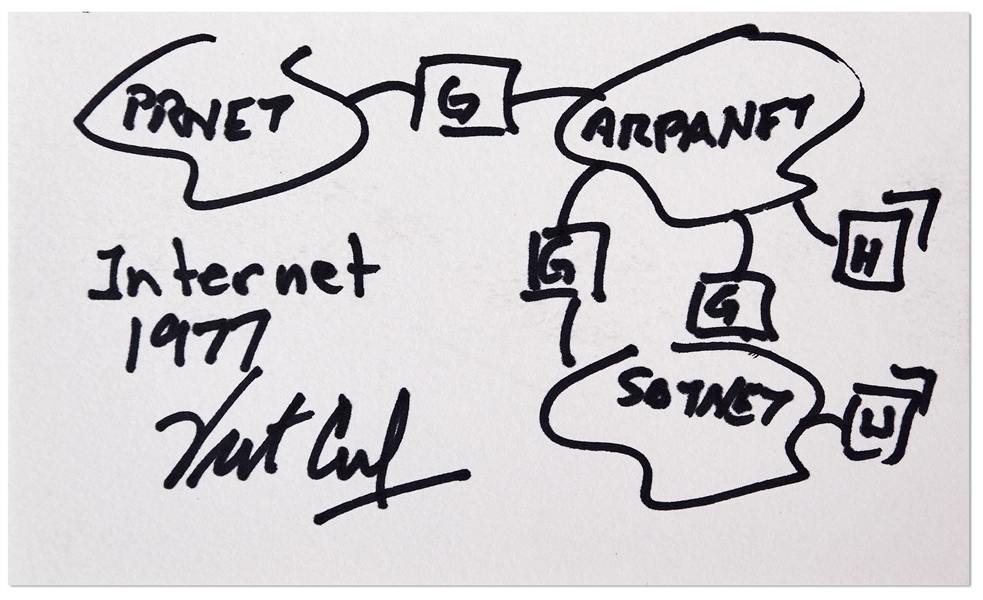 PRNET
G
ARPANET
H
G
G
Internet
1977
SATNET
Vint Cerf